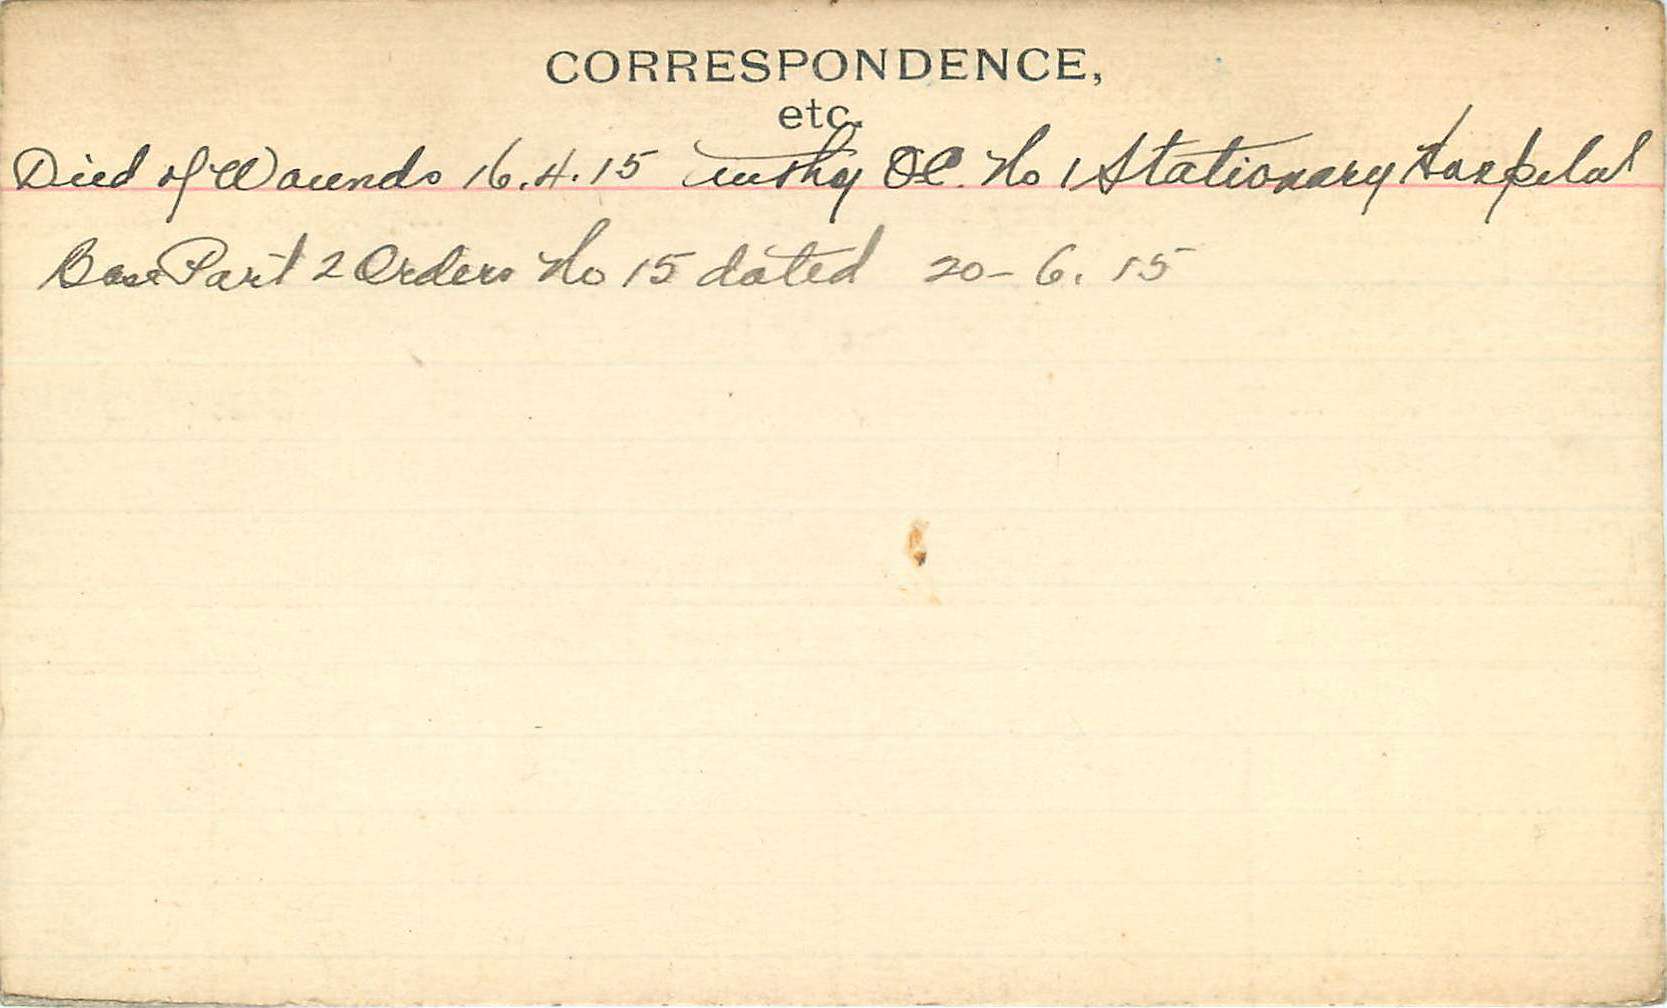 CORRESPONDENCE,
etc.
Died of Wounds 16.4.15 OC. No 1 Stationary Hospital
Base Part 2 Orders No 15 dated 20-6.15